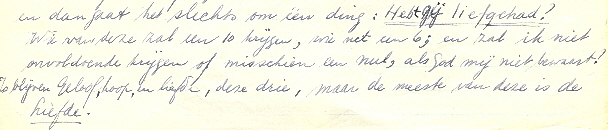 en dan gaat het slechts om één ding: Hebt gij liefgehad?
Wie van deze zal een 10 krijgen, wie net een 6; en zal ik niet
onvoldoende krijgen of misschien een nul, als God mij niet bewaart?
Zo blijven Geloof, hoop, en liefde, deze drie, maar de meeste van deze is de
liefde.